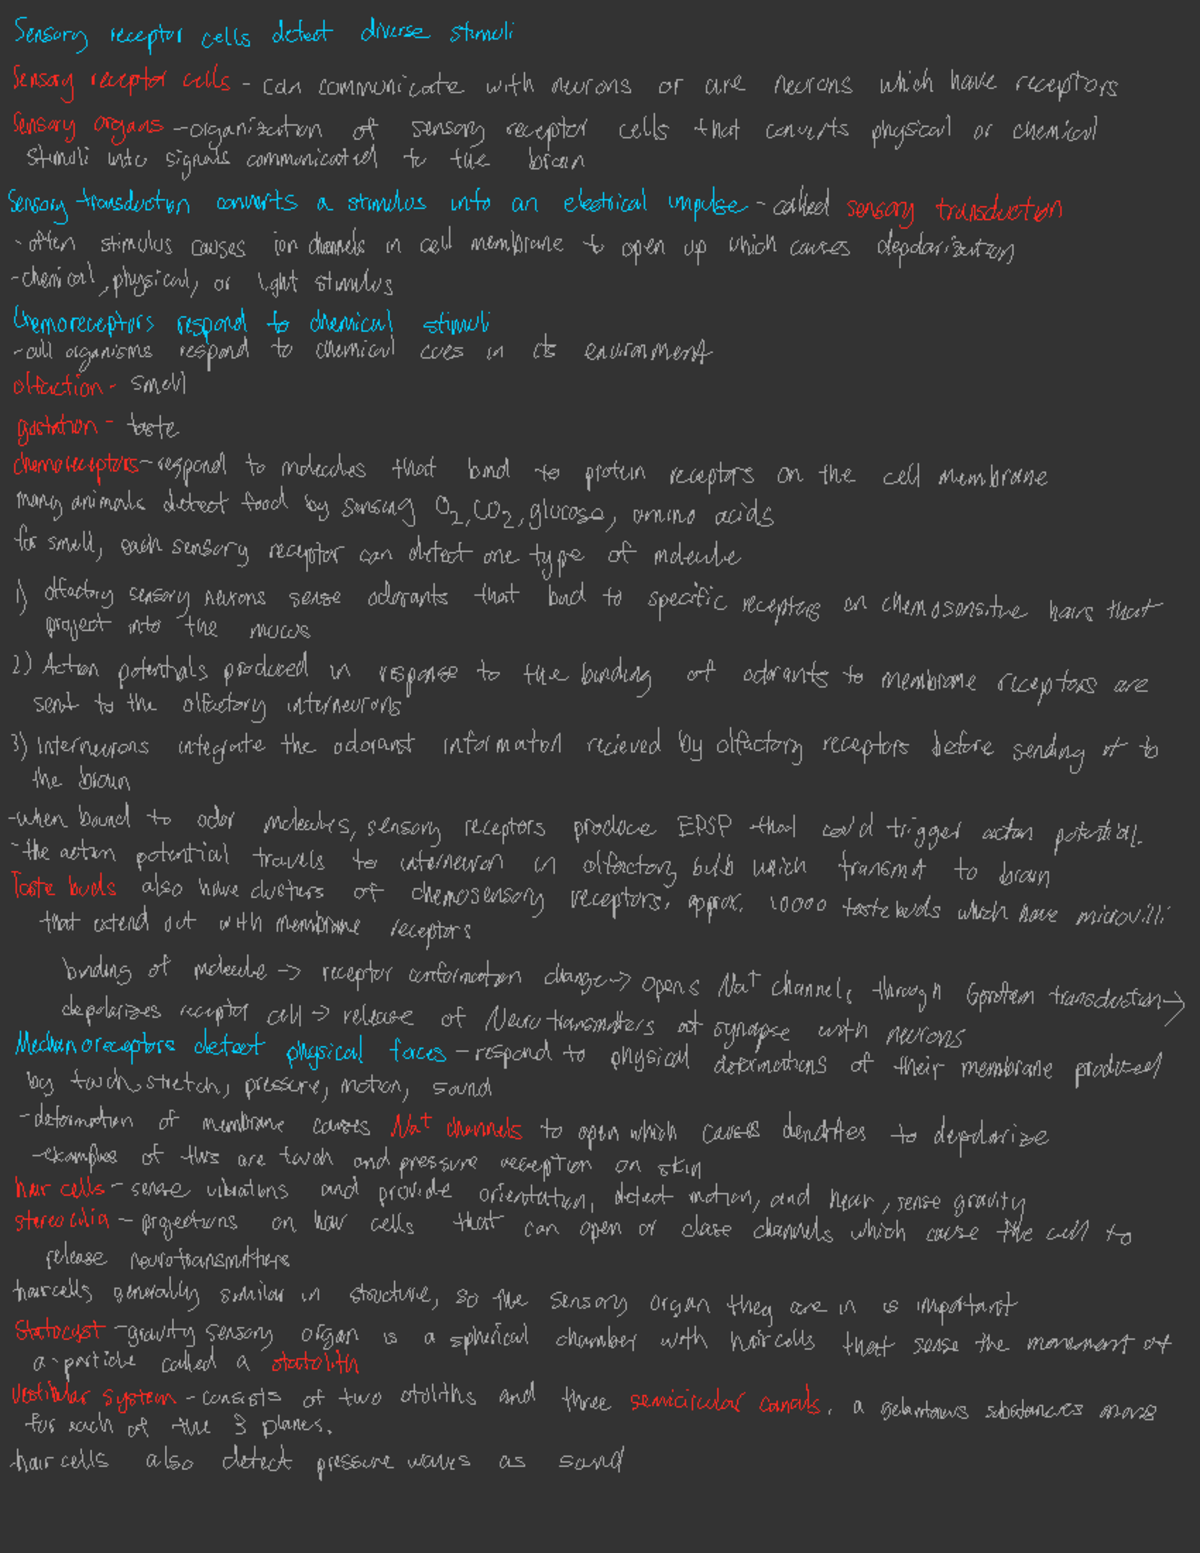 Sensory receptor cells detect diverse stimuli
Sensory receptor cells - can communicate with neurons or are neurons which have receptors
Sensory organs - organization of sensory receptor cells that converts physical or chemical
stimuli into signals communicated to the brain
Sensory transduction converts a stimulus into an electrical impulse - called sensory transduction
- often stimulus causes ion channels in cell membrane to open up which causes depolarization
- chemical, physical, or light stimulus
Chemoreceptors respond to chemical stimuli
- all organisms respond to chemical cues in its environment
olfaction - smell
gustation - taste
chemoreceptors - respond to molecules that bind to protein receptors on the cell membrane
many animals detect food by sensing O2, CO2, glucose, amino acids
for smell, each sensory receptor can detect one type of molecule
1) olfactory sensory neurons sense odorants that bind to specific receptors on chemosensitive hairs that
project into the mucus
2) Action potentials produced in response to the binding of odorants to membrane receptors are
sent to the olfactory interneurons
3) Interneurons integrate the odorant information recieved by olfactory receptors before sending it to
the brain
- when bound to odor molecules, sensory receptors produce EPSP that could trigger action potential.
- the action potential travels to interneuron in olfactory bulb which transmit to brain
Taste buds also have clusters of chemosensory receptors. approx. 10000 taste buds which have microvilli
that extend out with membrane receptors
binding of molecule -> receptor conformation change -> opens Na+ channels through G protein transduction ->
depolarizes receptor cell -> release of Neurotransmitters at synapse with neurons
Mechanoreceptors detect physical forces - respond to physical deformations of their membrane produced
by touch, stretch, pressure, motion, sound
- deformation of membrane causes Na+ channels to open which causes dendrites to depolarize
- examples of this are touch and pressure reception on skin
hair cells - sense vibrations and provide orientation, detect motion, and hear, sense gravity
stereocilia - projections on hair cells that can open or close channels which cause the cell to
release neurotransmitters
hair cells generally similar in structure, so the sensory organ they are in is important
Statocyst - gravity sensory organ is a spherical chamber with hair cells that sense the movement of
a particle called a statolith
Vestibular system - consists of two otoliths and three semicircular canals. a gelantaws substances move
for each of the 3 planes.
hair cells also detect pressure waves as sound